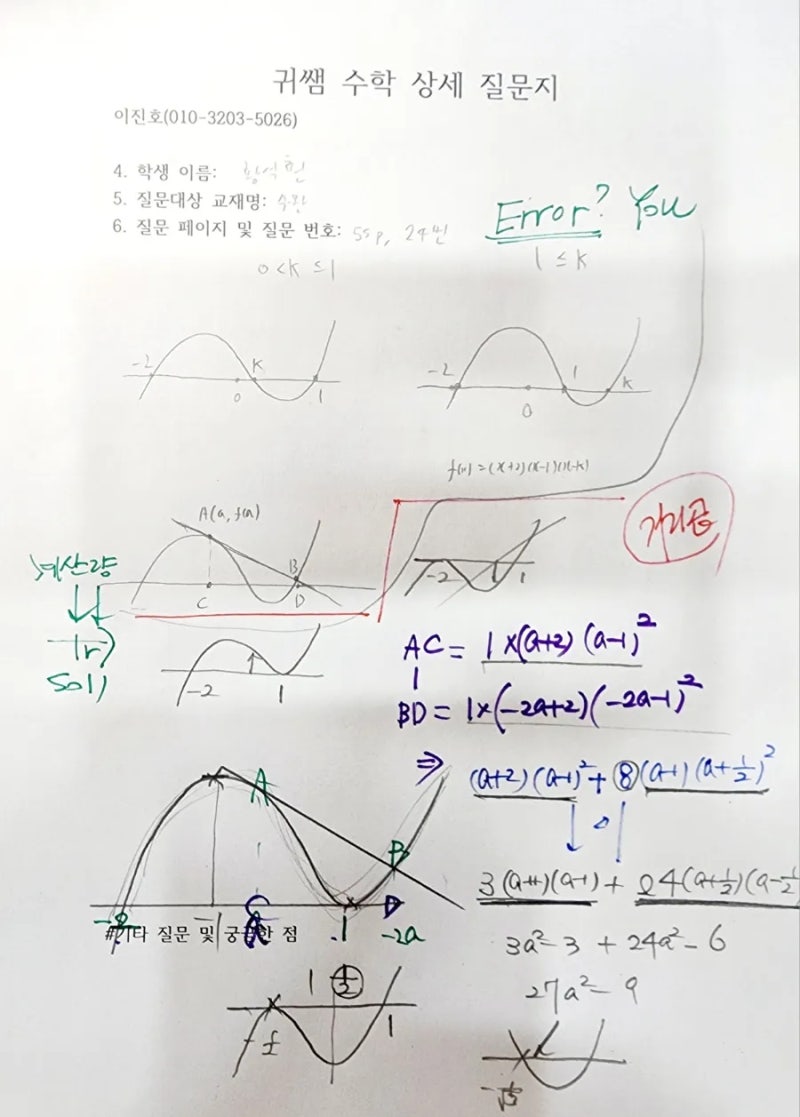 귀쌤 수학 상세 질문지
이진호(010-3203-5026)
4. 학생 이름: 황석현
5. 질문대상 교재명: 수완
6. 질문 페이지 및 질문 번호: 55p, 24번
Error? You
0<K≤1
1≤K
-2 K 0 1
-2 0 1 K
f(x)=(x+2)(x-1)(x-K)
A(a, f(a))
B
C D
계산량
-2 1 1
Sol)
-2 1
AC = 1×(a+2)(a-1)²
BD = 1×(-2a+2)(-2a-1)²
⇒ (a+2)(a-1)²+⑧(a-1)(a+½)²
A
B
C D
3(a+1)(a-1)+24(a+½)(a-½
-2 -1 1 -2a
#기타 질문 및 궁금한 점
3a²-3+24a²-6
27a²-9
1